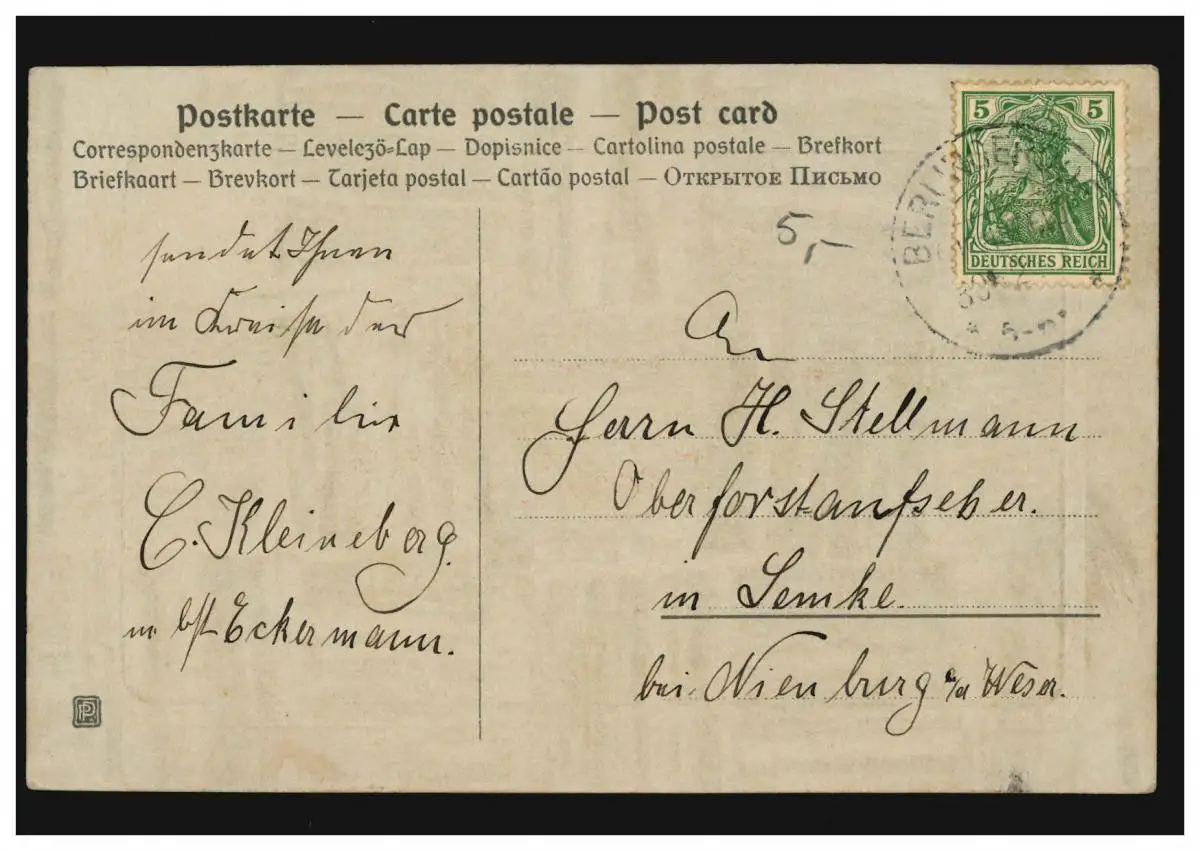 Postkarte — Carte postale — Post card
Correspondenzkarte — Levelező-Lap — Dopisnice — Cartolina postale — Brefkort
Briefkaart — Brevkort — Tarjeta postal — Cartão postal — Открытое Письмо
5 5
DEUTSCHES REICH
BERLIN
5,-
sendet Ihnen
im Kreise der
Familie
C. Kleineberg.
Eckermann.
An
Herrn H. Stellmann
Oberforstaufseher.
in Lemke.
bei Nienburg a/d Weser.